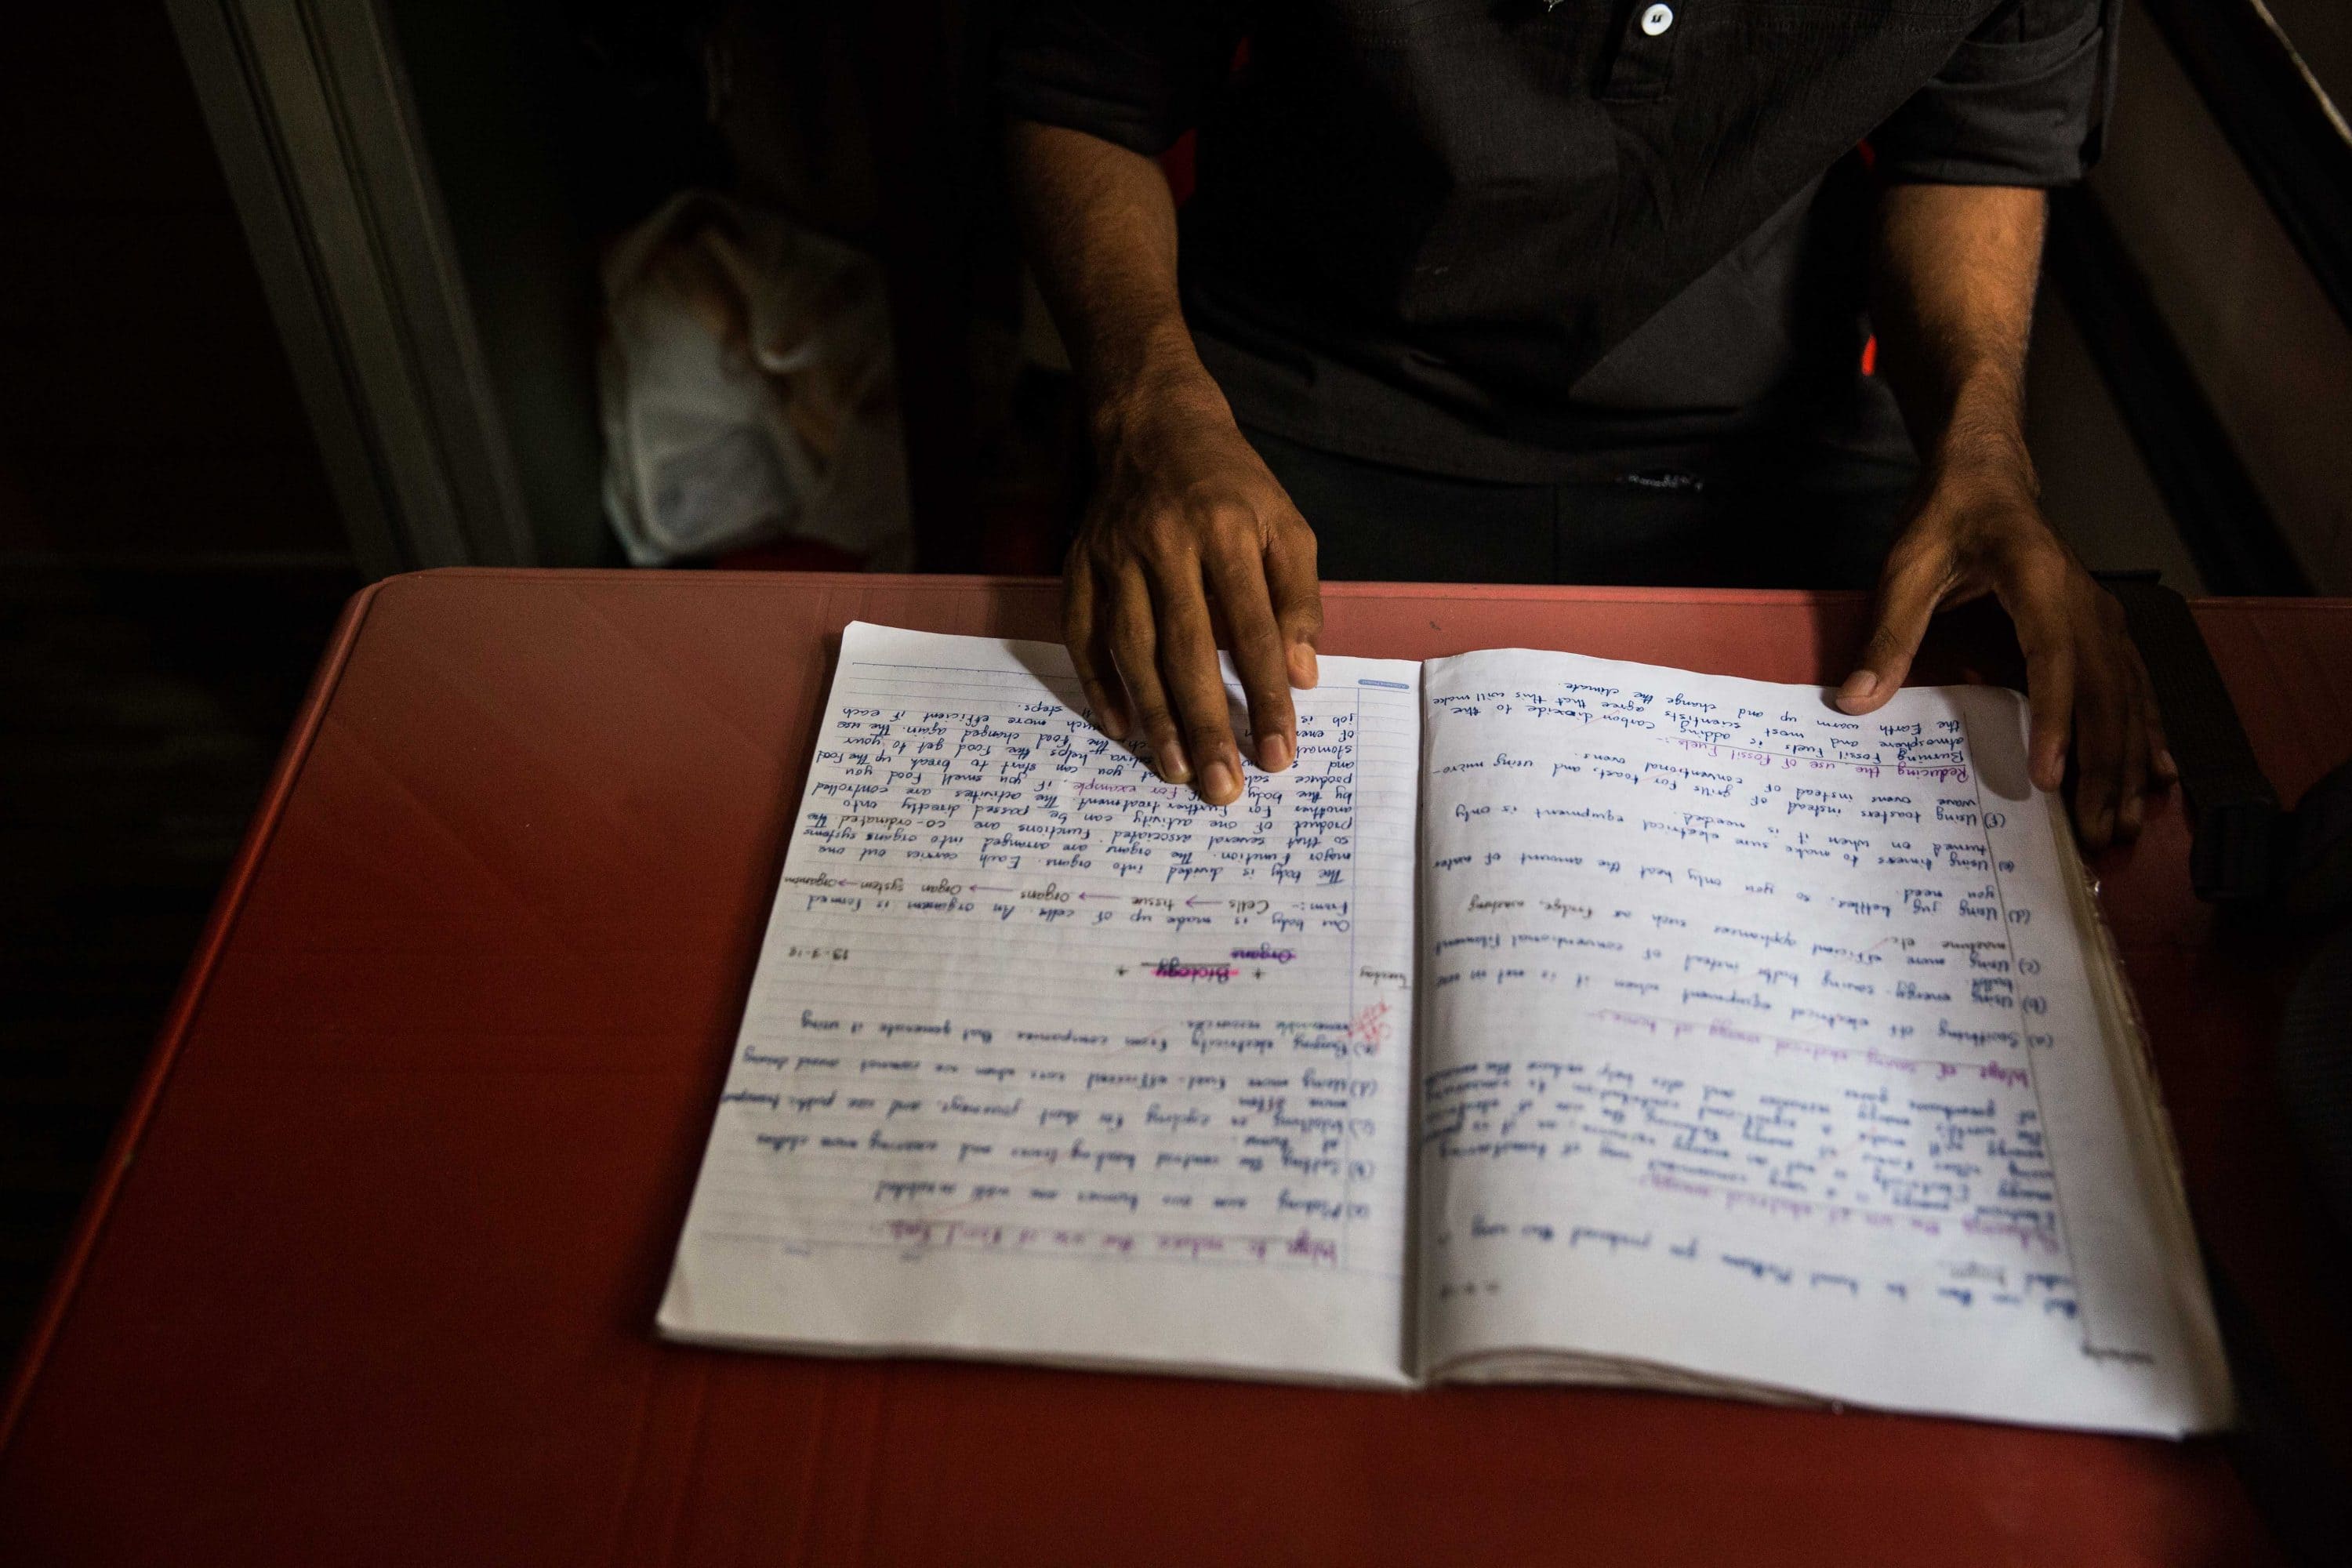 Reducing the use of electrical energy:
Electrical energy is a very convenient way of transferring
energy. Electricity is not an energy resource, as it is
using other forms of energy. Reducing the use of electrical
energy will make a significant contribution to conserving
the world's energy resources and also help reduce the
of greenhouse gases
Ways of saving electrical energy at home:-
(a) Switching off electrical equipment when it is not in use
(b) Using energy-saving bulbs instead of conventional filament
bulbs.
(c) Using more efficient appliances such as fridge, washing
machine etc.
(d) Using jug kettles, so you only heat the amount of water
you need.
(e) Using timers to make sure electrical equipment is only
turned on when it is needed.
(f) Using toasters instead of grills for toast, and using micro-
wave ovens instead of conventional ovens.
Reducing the use of Fossil Fuels:-
Burning Fossil Fuels is adding Carbon dioxide to the
atmosphere and most scientists agree that this will make
the Earth warm up and change the climate.
Ways to reduce the use of Fossil Fuels:-
(a) Making sure our homes are well insulated
(b) Setting the central heating lower and wearing more clothes
at home.
(c) Walking or cycling for short journeys, and use public transport
more often
(d) Using more fuel-efficient cars when we cannot avoid driving
(e) Buying electricity from companies that generate it using
renewable resources.
Tuesday
+ Biology +
13-9-16
Organs
Our body is made up of cells. An organism is formed
From:- Cells → tissue → Organs → Organ system → Organism
The body is divided into organs. Each carries out one
major function. The organs are arranged into organs systems
so that several associated functions are co-ordinated. The
product of one activity can be passed directly onto
another for further treatment. The activities are controlled
by the body itself. For example, if you smell food you
produce sal that you can start to break up the food
and s saliva helps the food get to your
stomach the food changed again. The use
of ener much more efficient if each
job is steps.